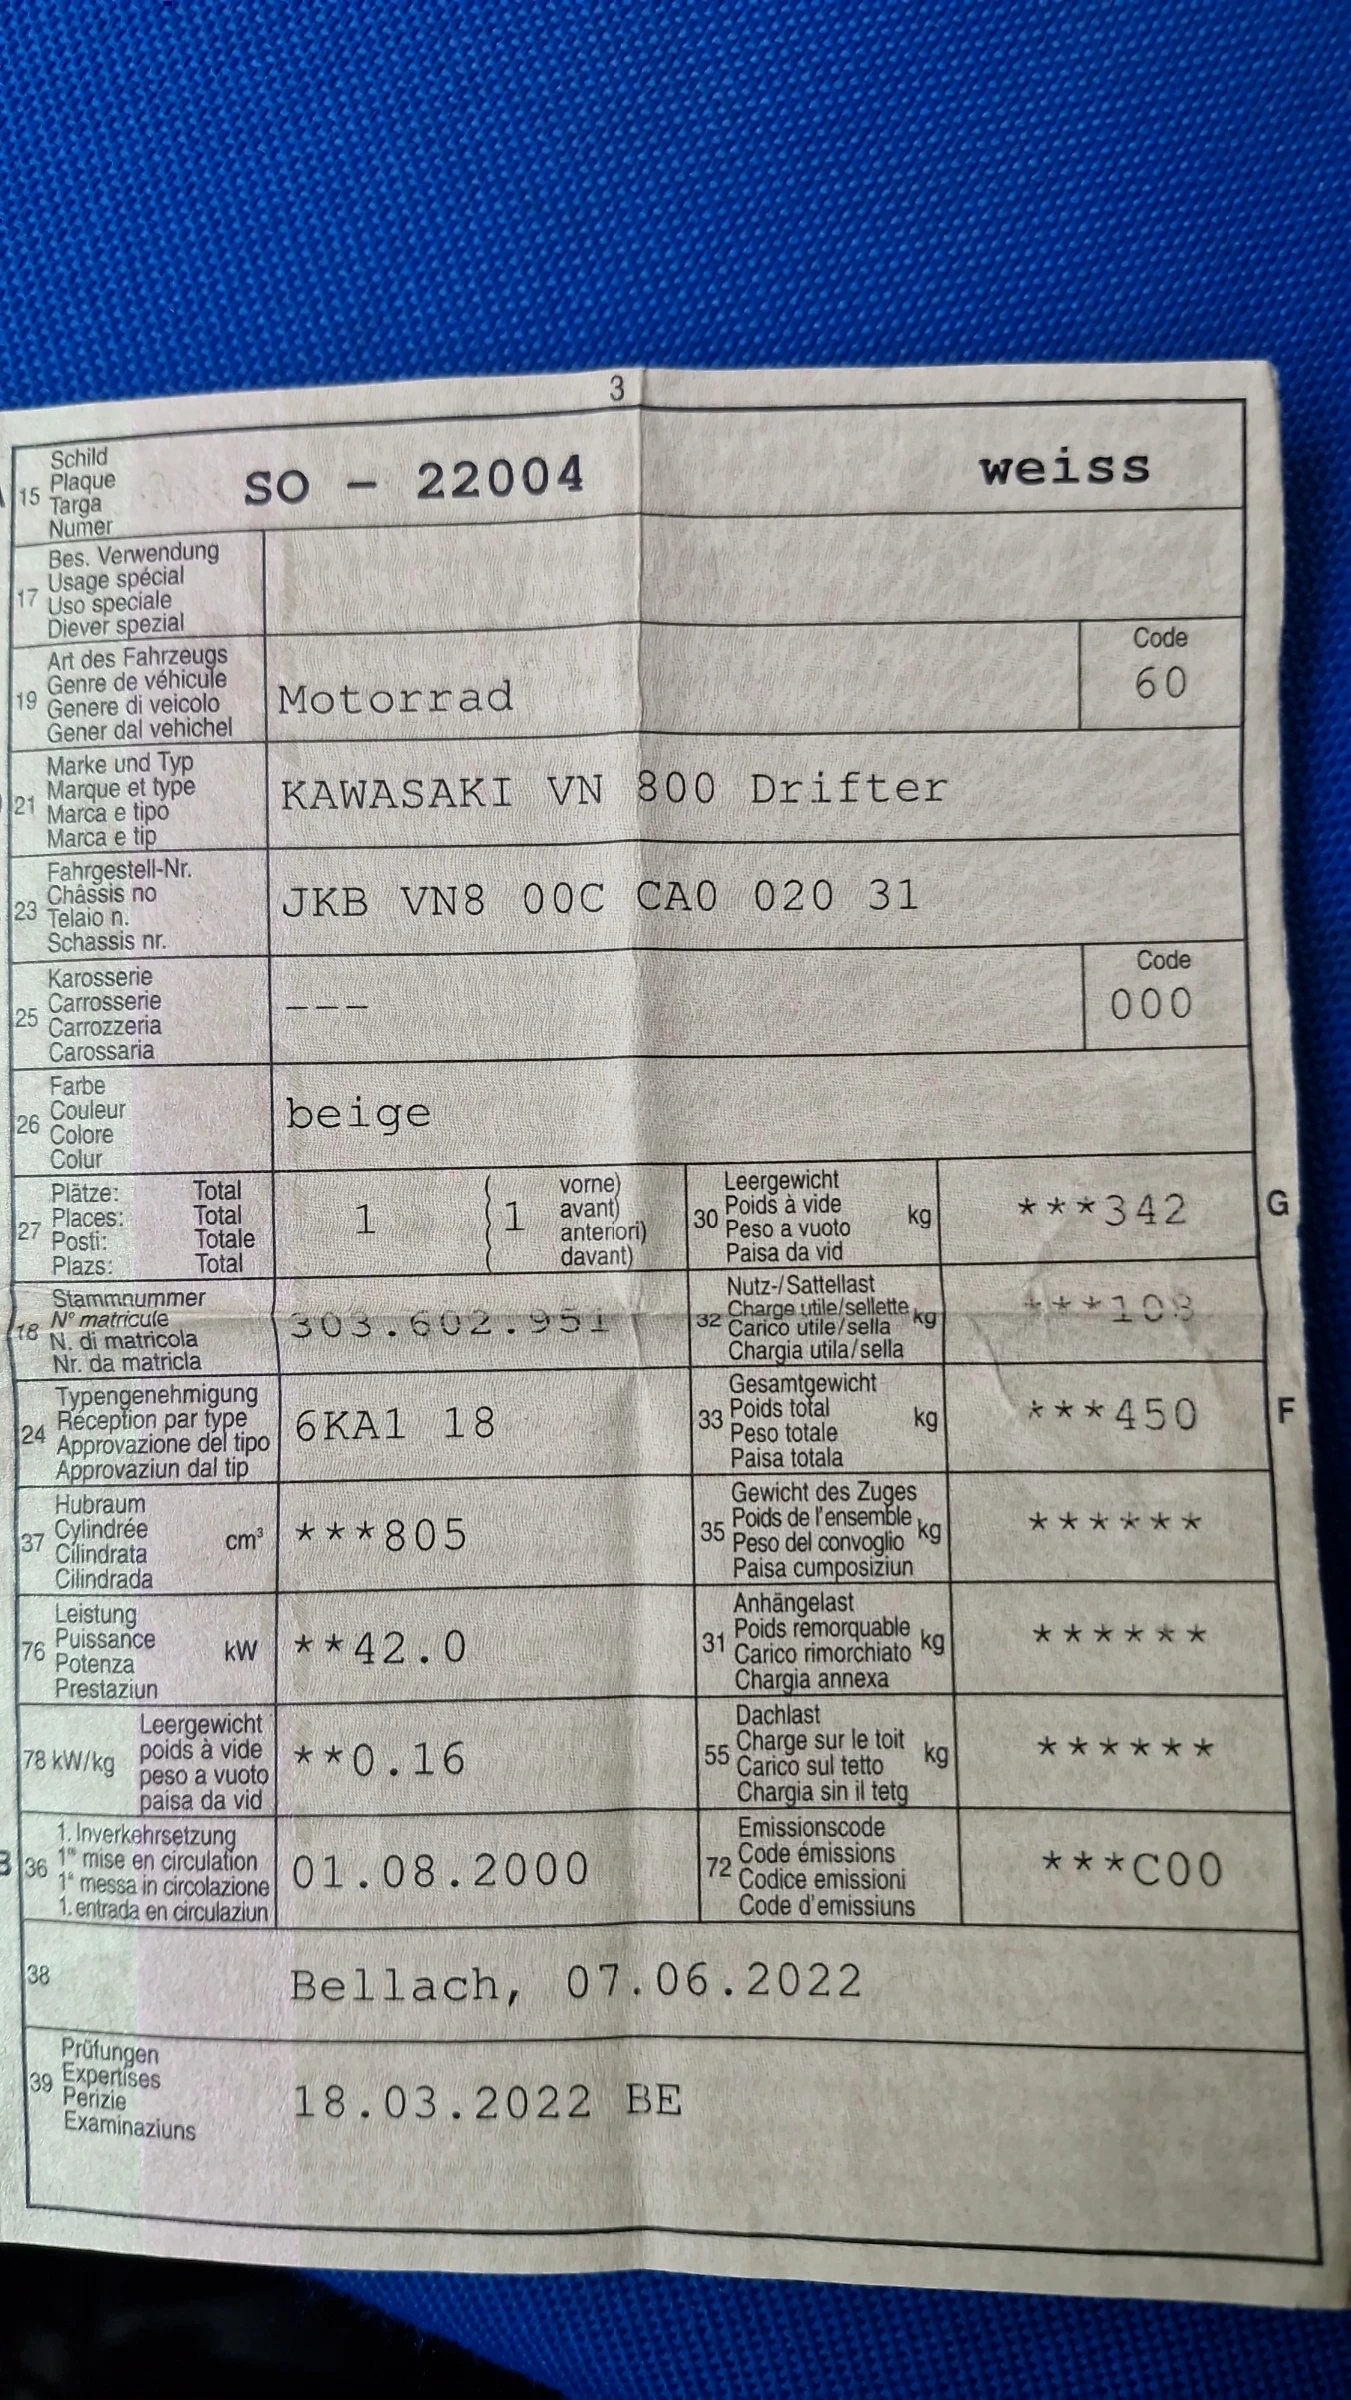 3
15 Schild
Plaque
Targa
Numer
SO - 22004 weiss
17 Bes. Verwendung
Usage spécial
Uso speciale
Diever spezial
19 Art des Fahrzeugs
Genre de véhicule
Genere di veicolo
Gener dal vehichel
Motorrad
Code
60
21 Marke und Typ
Marque et type
Marca e tipo
Marca e tip
KAWASAKI VN 800 Drifter
23 Fahrgestell-Nr.
Châssis no
Telaio n.
Schassis nr.
JKB VN8 00C CA0 020 31
25 Karosserie
Carrosserie
Carrozzeria
Carossaria
---
Code
000
26 Farbe
Couleur
Colore
Colur
beige
27 Plätze: Total
Places: Total
Posti: Totale
Plazs: Total
1 { 1
vorne)
avant)
anteriori)
davant)
30 Leergewicht
Poids à vide
Peso a vuoto
Paisa da vid
kg
***342
G
18 Stammnummer
N° matricule
N. di matricola
Nr. da matricla
303.602.951
32 Nutz-/Sattellast
Charge utile/sellette
Carico utile/sella
Chargia utila/sella
kg
***108
24 Typengenehmigung
Réception par type
Approvazione del tipo
Approvaziun dal tip
6KA1 18
33 Gesamtgewicht
Poids total
Peso totale
Paisa totala
kg
***450
F
37 Hubraum
Cylindrée
Cilindrata
Cilindrada
cm³
***805
35 Gewicht des Zuges
Poids de l'ensemble
Peso del convoglio
Paisa cumposiziun
kg
******
76 Leistung
Puissance
Potenza
Prestaziun
kW
**42.0
31 Anhängelast
Poids remorquable
Carico rimorchiato
Chargia annexa
kg
******
78 kW/kg
Leergewicht
poids à vide
peso a vuoto
paisa da vid
**0.16
55 Dachlast
Charge sur le toit
Carico sul tetto
Chargia sin il tetg
kg
******
B
36 1. Inverkehrsetzung
1re mise en circulation
1a messa in circolazione
1. entrada en circulaziun
01.08.2000
72 Emissionscode
Code émissions
Codice emissioni
Code d'emissiuns
***C00
38
Bellach, 07.06.2022
39 Prüfungen
Expertises
Perizie
Examinaziuns
18.03.2022 BE